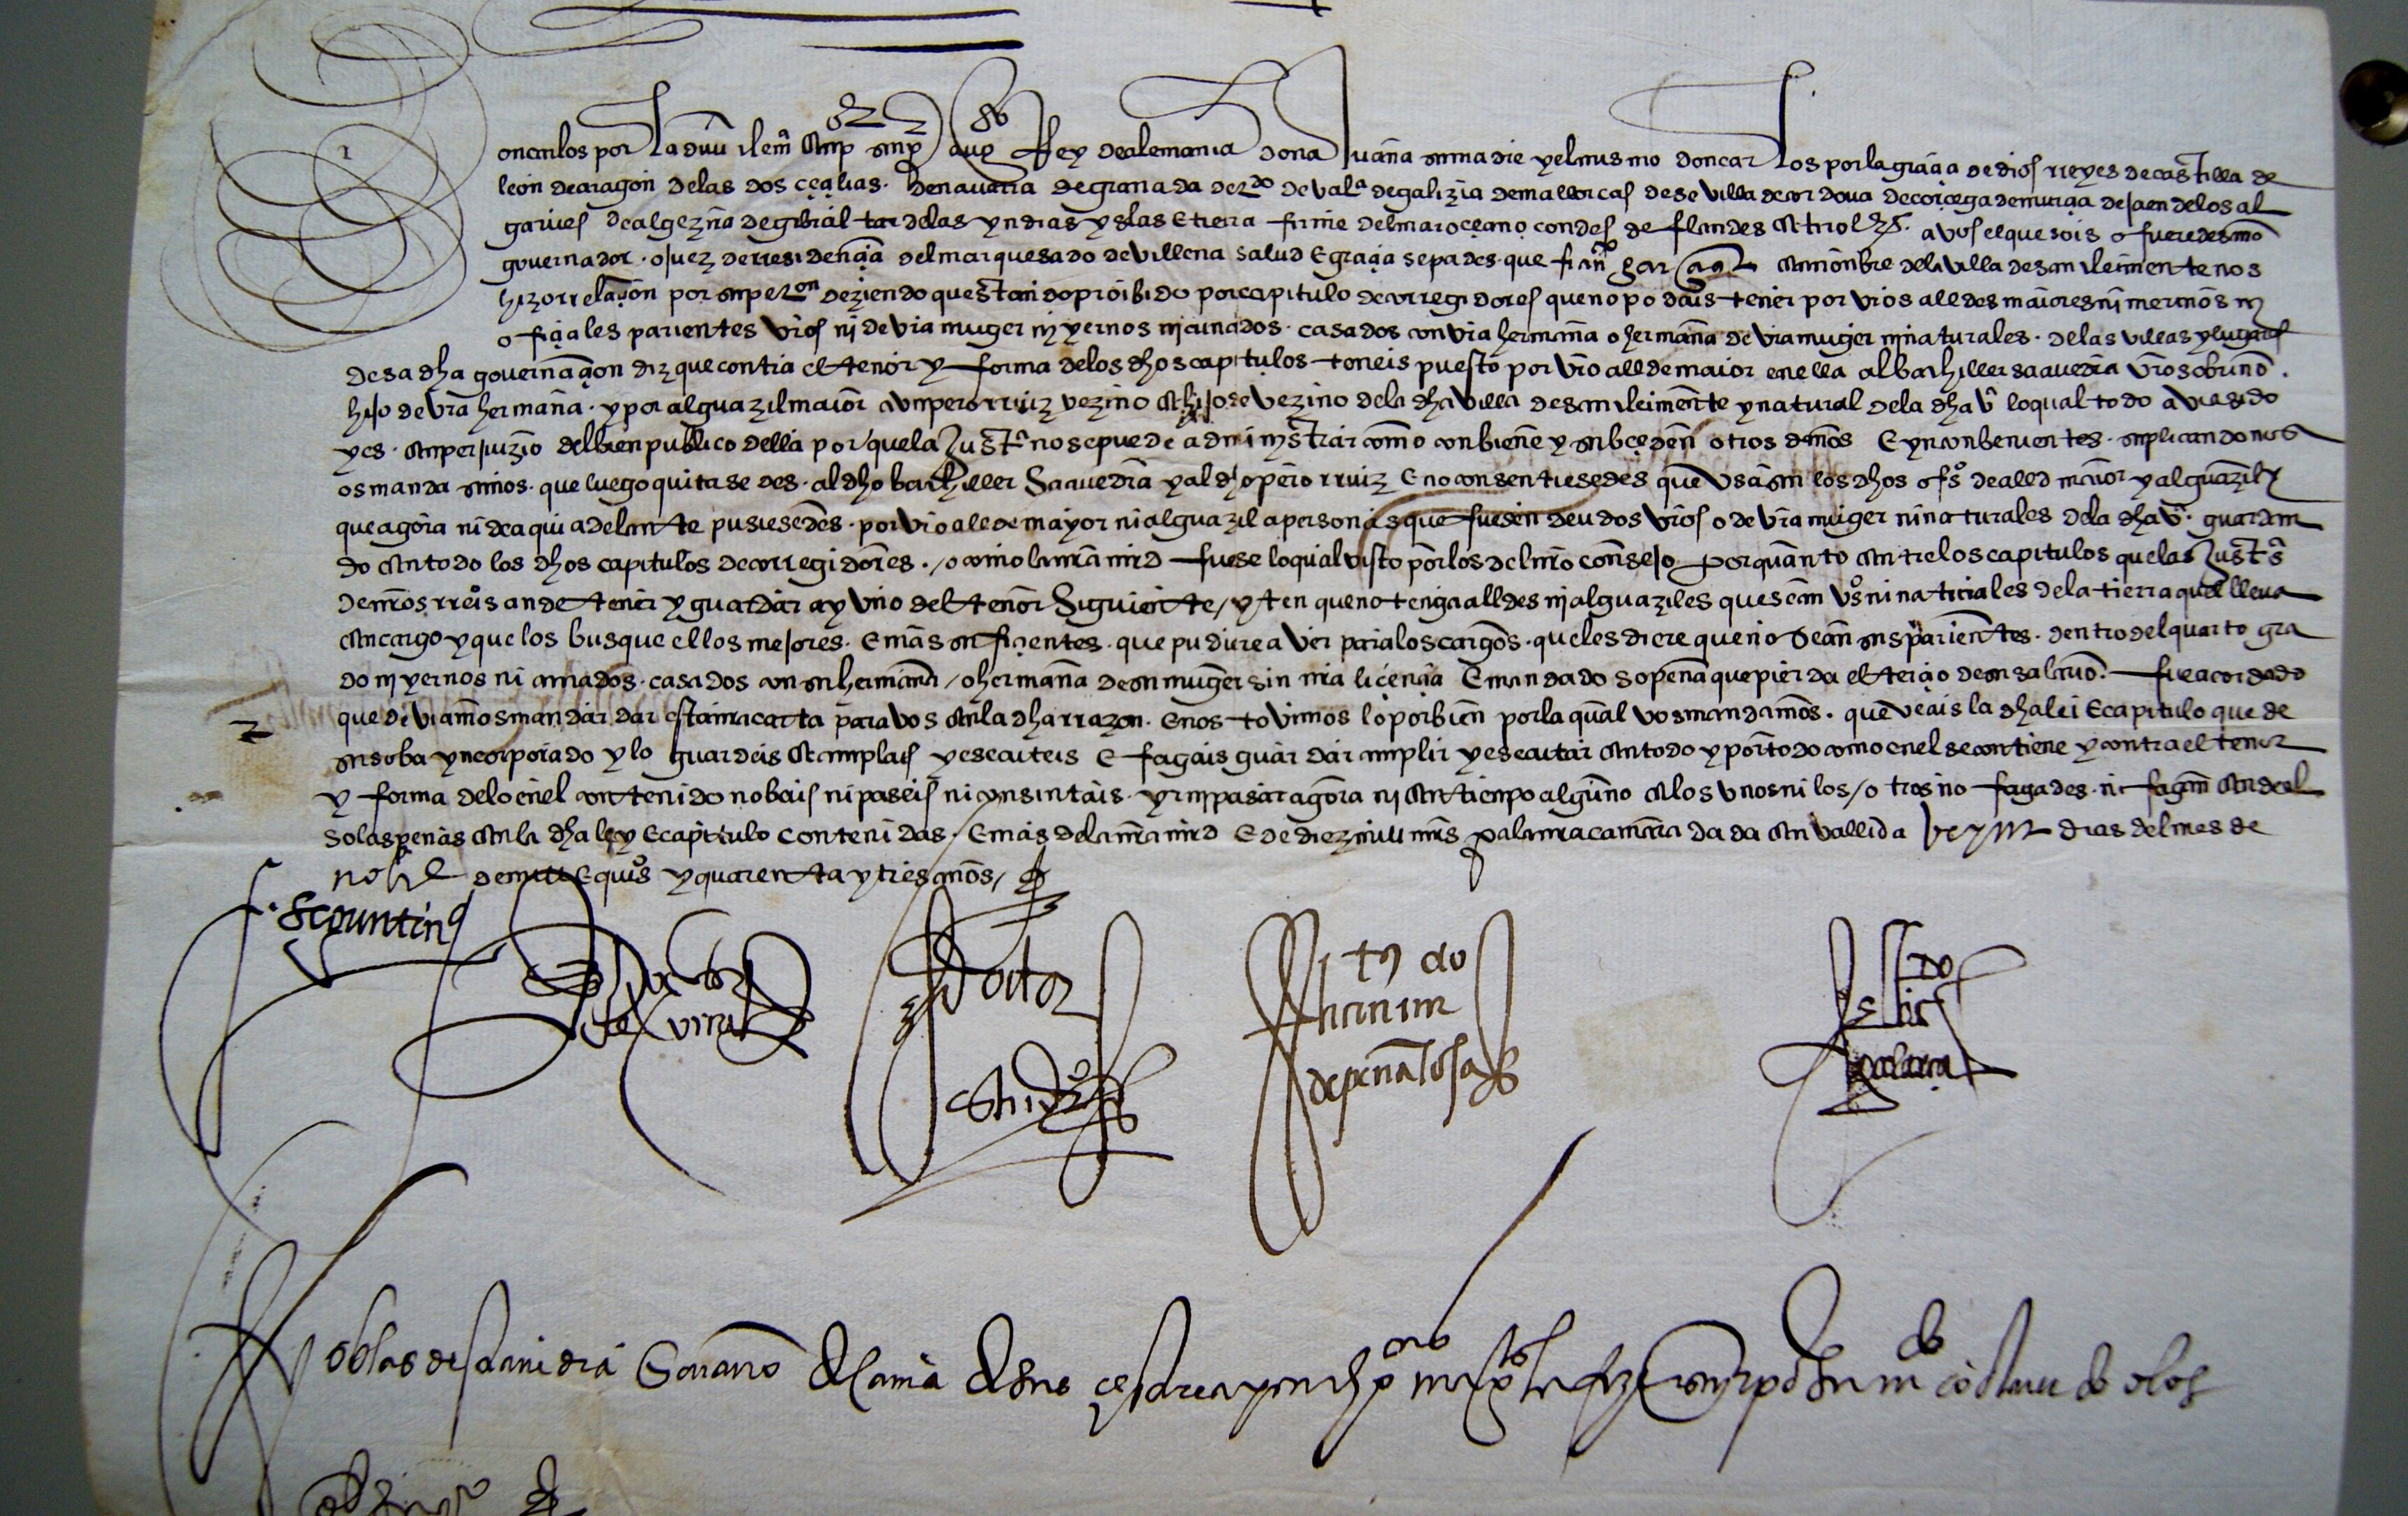 on carlos por la divi clem emp semp aug Rey de alemania dona Juana su madre y el mismo don carlos por la graçia de dios rreyes de castilla de
leon de aragon de las dos çeçilias de navarra de granada de tdo de vala de galizia de mallorcas de sevilla de cordova de corçega de murçia de jaen de los al
garves de algezira de gibraltar de las yndias yslas e tierra firme del mar oçeano condes de flandes e tirol zs. a vos el que sois o fueredes nro
governador o juez de rresidençia del marquesado de villena salud e graçia sepades que franco garçia en nonbre de la villa de san clemente nos
hizo rrelaçion por su peon deziendo que estando proibido por capitulo de corregidores que no podais tener por vros alldes maiores ni merinos ni
ofiçiales parientes vros ni de vra muger ni yernos ni cunados casados con vra hermana o hermana de vra muger ni naturales de las villas y lugares
desa dha governaçion diz que contra el tenor y forma de los dhos capitulos teneis puesto por vro allde maior en ella al bachiller saavedra vro sobrino
hijo de vra hermana y por alguazil maior a un pero rruiz vezino e hijo de vezino de la dha villa de san clemente y natural de la dha va lo qual todo avia sido
y es en perjuizio del bien publico della por que la justa no se puede administrar como conbiene y subçeden otros danos e ynconbenientes suplicandonos
os mandasemos que luego quitasedes al dho bachiller saavedra y al dho pero rruiz e no consentiesedes que usasen los dhos ofos de alld maior y alguazil y
que agora ni de aqui adelante pusiesedes por vro allde mayor ni alguazil a personas que fuesen deudos vros o de vra muger ni naturales de la dha va guardan
do en todo los dhos capitulos de corregidores o como la nra mrd fuese lo qual visto por los del nro consejo por quanto entre los capitulos que las justas
de nros rreis an de tener y guardar ay uno del tenor siguiente yten que no tenga alldes ni alguaziles que sean vos ni naturales de la tierra que lleva
en cargo y que los busque ellos mejores e mas sufiçientes que pudiere aver para los cargos que les diere que no sean sus parientes dentro del quarto gra
do ni yernos ni cunados casados con su hermana o hermana de su muger sin nra liçençia e mandado so pena que pierda el terçio de su salario fue acordado
que deviamos mandar dar esta nra carta para vos en la dha rrazon e nos tovimoslo por bien por la qual vos mandamos que veais la dha lei e capitulo que de
suso va yncorporado y lo guardeis e cunplais y esecuteis e fagais guardar cunplir y esecutar en todo y por todo como en el se contiene y contra el tenor
y forma de lo en el contenido no vais ni paseis ni consintais yr ni pasar agora ni en tienpo alguno e los unos ni los otros no fagades ni fagan ende al
so las penas en la dha ley e capitulo contenidas e mas de la nra mrd e de diez mill mrs para la nra camara dada en vallid a veynte dias del mes de
nobe de mill e quios y quarenta y tres anos
f. seguntino
Doctor
del corral
El dotor
escudero
El ldo
mercado
de peñalosa
El ldo
Yo blas de saavedra escrivano de camara de sus çes y catas mags la fize escrevir por su mdo con acuerdo de los
del su consejo